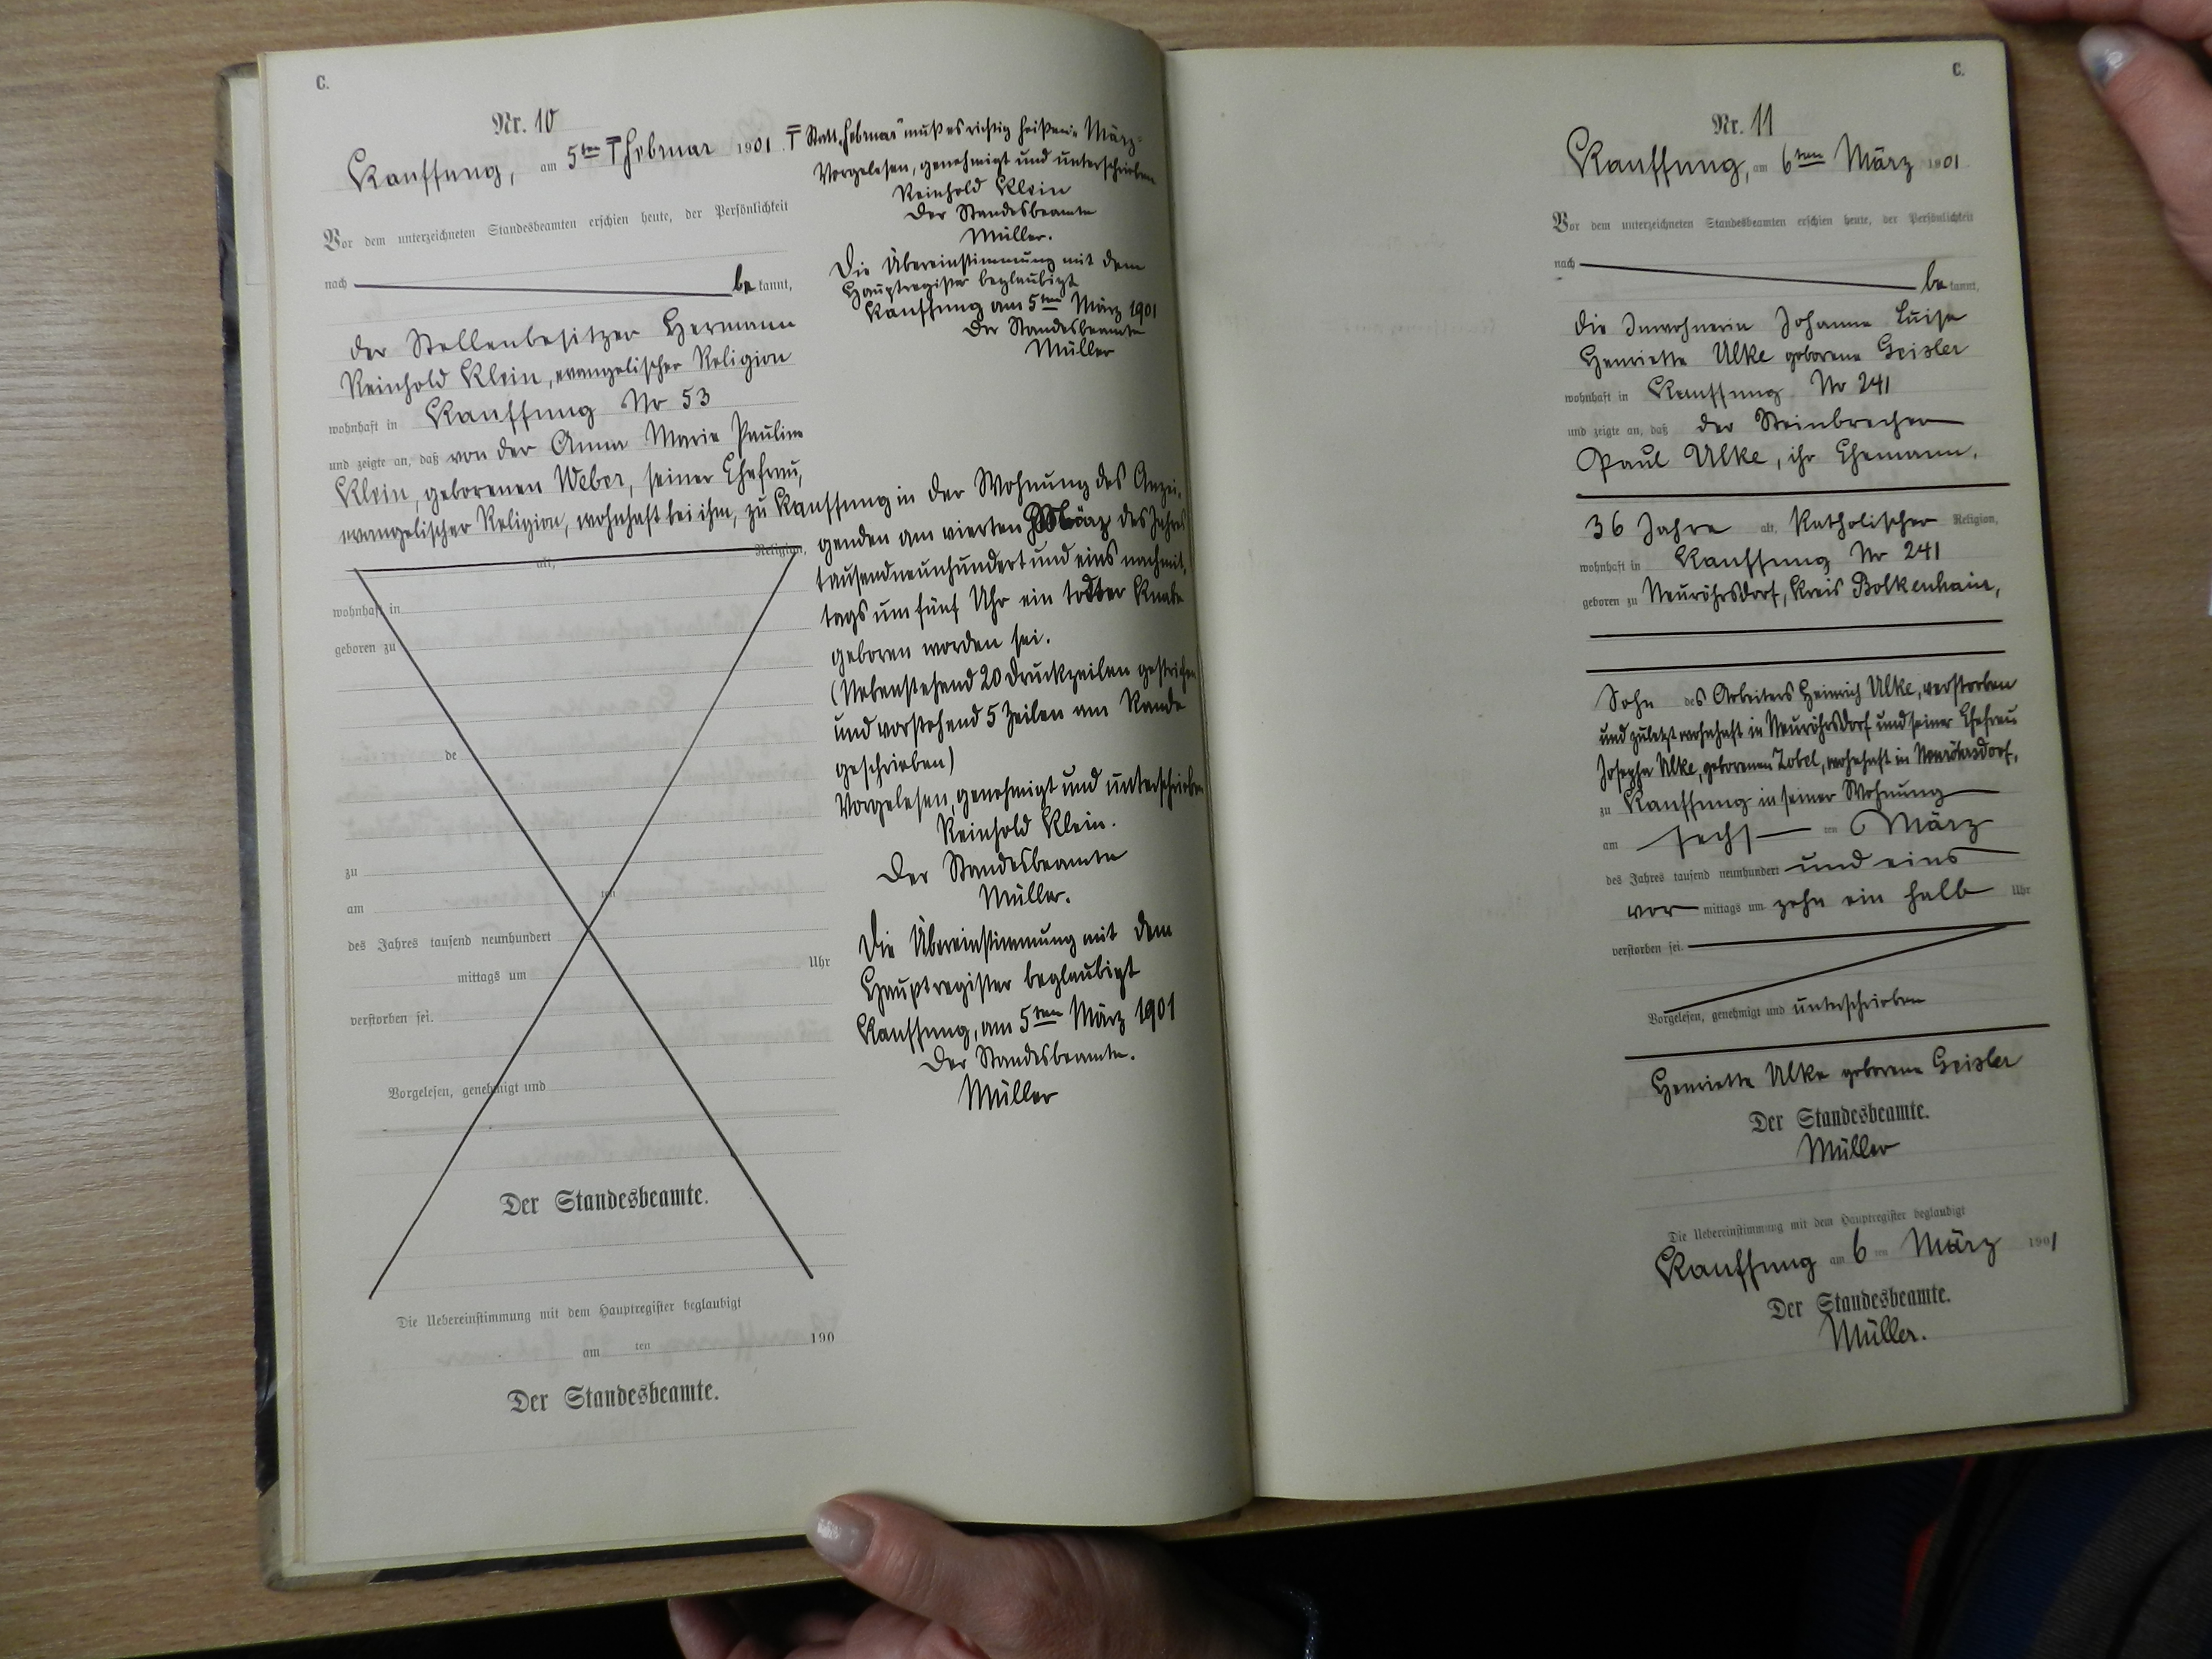 C.
Nr. 10
Kauffung, am 5ten ₸ Februar 1901.
Vor dem unterzeichneten Standesbeamten erschien heute, der Persönlichkeit
nach be kannt,
der Stellenbesitzer Hermann
Reinhold Klein, evangelischer Religion
wohnhaft in Kauffung Nr 53
und zeigte an, daß von der Anna Marie Pauline
Klein, geborenen Weber, seiner Ehefrau,
evangelischer Religion, wohnhaft bei ihm, zu Kauffung in der Wohnung des Anzei-
alt, Religion,
wohnhaft in
geboren zu
de
zu
am ten
des Jahres tausend neunhundert
mittags um Uhr
verstorben sei.
Vorgelesen, genehmigt und
Der Standesbeamte.
Die Uebereinstimmung mit dem Hauptregister beglaubigt
am ten 190
Der Standesbeamte.
₸ Statt „Februar" muß es richtig heißen: März.
Vorgelesen, genehmigt und unterschrieben
Reinhold Klein
Der Standesbeamte
Müller.
Die Übereinstimmung mit dem
Hauptregister beglaubigt
Kauffung am 5ten März 1901
Der Standesbeamte
Müller
genden am vierten März des Jahres
tausendneunhundert und eins nachmit-
tags um fünf Uhr ein todter Knabe
geboren worden sei.
(Nebenstehend 20 Druckzeilen gestrichen
und vorstehend 5 Zeilen am Rande
geschrieben)
Vorgelesen, genehmigt und unterschrieben
Reinhold Klein.
Der Standesbeamte
Müller.
Die Übereinstimmung mit dem
Hauptregister beglaubigt
Kauffung, am 5ten März 1901
Der Standesbeamte.
Müller
C.
Nr. 11
Kauffung, am 6ten März 1901
Vor dem unterzeichneten Standesbeamten erschien heute, der Persönlichkeit
nach be kannt,
die Inwohnerin Johanne Luise
Henriette Ulke geborene Geisler
wohnhaft in Kauffung Nr 241
und zeigte an, daß der Steinbrecher
Paul Ulke, ihr Ehemann,
36 Jahre alt, Katholischer Religion,
wohnhaft in Kauffung Nr 241
geboren zu Neuröhrsdorf, Kreis Bolkenhain,
Sohn des Arbeiters Heinrich Ulke, verstorben
und zuletzt wohnhaft in Neuröhrsdorf und seiner Ehefrau
Josepha Ulke, geborenen Zobel, wohnhaft in Neuröhrsdorf,
zu Kauffung in seiner Wohnung
am sechs ten März
des Jahres tausend neunhundert und eins
vor mittags um zehn ein halb Uhr
verstorben sei.
Vorgelesen, genehmigt und unterschrieben
Henriette Ulke geborene Geisler
Der Standesbeamte.
Müller
Die Uebereinstimmung mit dem Hauptregister beglaubigt
Kauffung am 6 ten März 1901
Der Standesbeamte.
Müller.